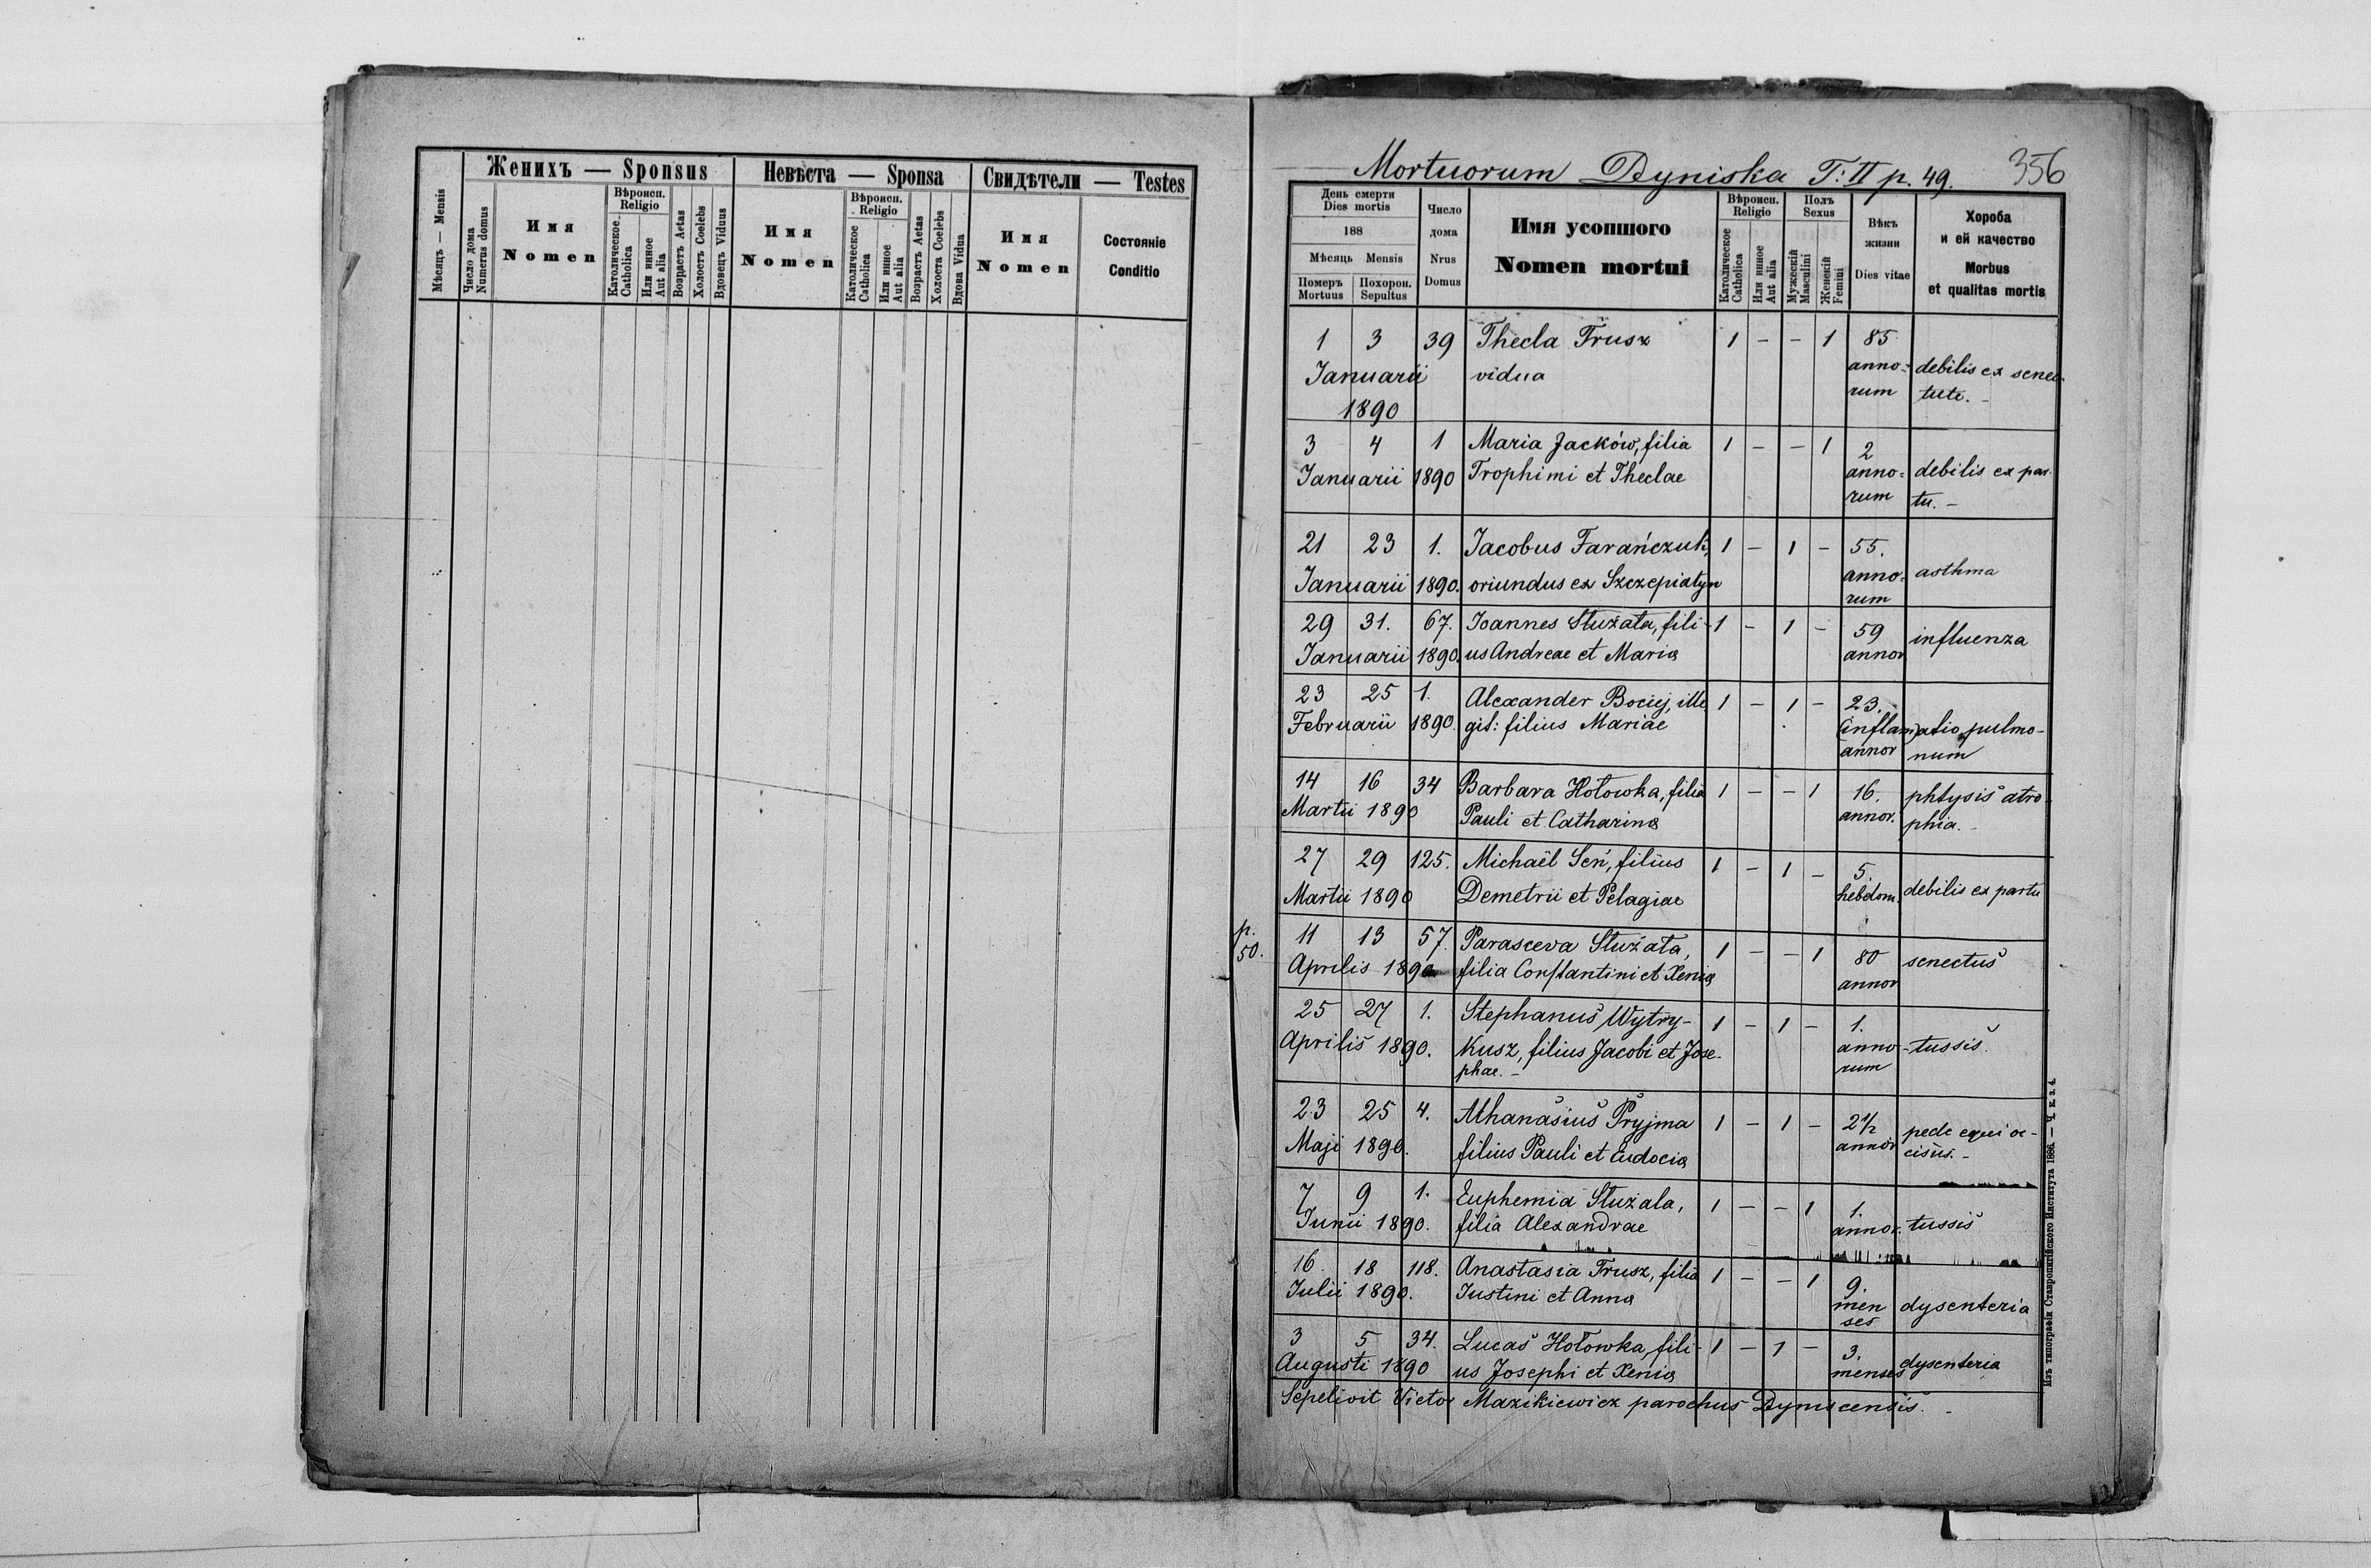 Женихъ — Sponsus
Невѣста — Sponsa
Свидѣтели — Testes
Мѣсяцъ — Mensis
Число дома
Numerus domus
Имя
Nomen
Вѣроисп.
Religio
Католическое
Catholica
Или инное
Aut alia
Возрастъ Aetas
Холостъ Coelebs
Вдовецъ Viduus
Имя
Nomen
Вѣроисп.
Religio
Католическое
Catholica
Или инное
Aut alia
Возрастъ Aetas
Холоста Coelebs
Вдова Vidua
Имя
Nomen
Состояніе
Conditio
Mortuorum Dyniska T: II p. 49.
356
День смерти
Dies mortis
188
Мѣсяць Mensis
Померъ
Mortuus
Похорон.
Sepultus
Число
дома
Nrus
Domus
Имя усопшого
Nomen mortui
Вѣроисп.
Religio
Католическое
Catholica
Или инное
Aut alia
Полъ
Sexus
Мужескій
Masculini
Женскій
Femini
Вѣкъ
жизни
Dies vitae
Хороба
и ей качество
Morbus
et qualitas mortis
1 3 39 Thecla Trusz 1 – – 1 85
Januarii vidua anno- debilis ex senec-
1890 rum tute. –
3 4 1 Maria Jacków, filia 1 – – 1 2
Januarii 1890 Trophimi et Theclae anno- debilis ex par-
rum tu. –
21 23 1. Jacobus Farańczuk, 1 – 1 – 55.
Januarii 1890. oriundus ex Szczepiatyn anno- asthma
rum
29 31. 67. Joannes Służała, fili- 1 – 1 – 59 influenza
Januarii 1890. us Andreae et Maria annor
23 25 1. Alexander Bociuj, ille 1 – 1 – 23.
Februarii 1890. git: filius Mariae (inflam)atio pulmo-
annor num
14 16 34 Barbara Hołowka, filia 1 – – 1 16. phtysis atro-
Martii 1890 Pauli et Catharina annor. phia. –
27 29 125. Michaël Seń, filius 1 – 1 – 5.
Martii 1890 Demetrii et Pelagiae hebdom. debilis ex partu
p.
50.
11 13 57. Parasceva Służała, 1 – – 1 80 senectus
Aprilis 1890 filia Constantini et Xenia annor
25 27 1. Stephanus Wytry- 1 – 1 – 1.
Aprilis 1890. kusz, filius Jacobi et Jose- anno- tussis.
phae. – rum
23 25 4. Athanasius Pryjma 1 – 1 – 2½ pede equi oc-
Maji 1890. filius Pauli et Eudocia annor cisus. –
7 9 1. Euphemia Służala, 1 – – 1 1.
Junii 1890. filia Alexandrae annor. tussis
16 18 118. Anastasia Trusz, filia 1 – – 1 9.
Julii 1890. Justini et Anna men dysenteria
ses
3 5 34. Lucas Hołowka, fili- 1 – 1 – 3.
Augusti 1890 us Josephi et Xenia menses dysenteria
Sepelivit Victor Mazikiewicz parochus Dyniscensis. –
Изъ типографіи Ставропигійского Института 1886. — Ч. к. з. 4.